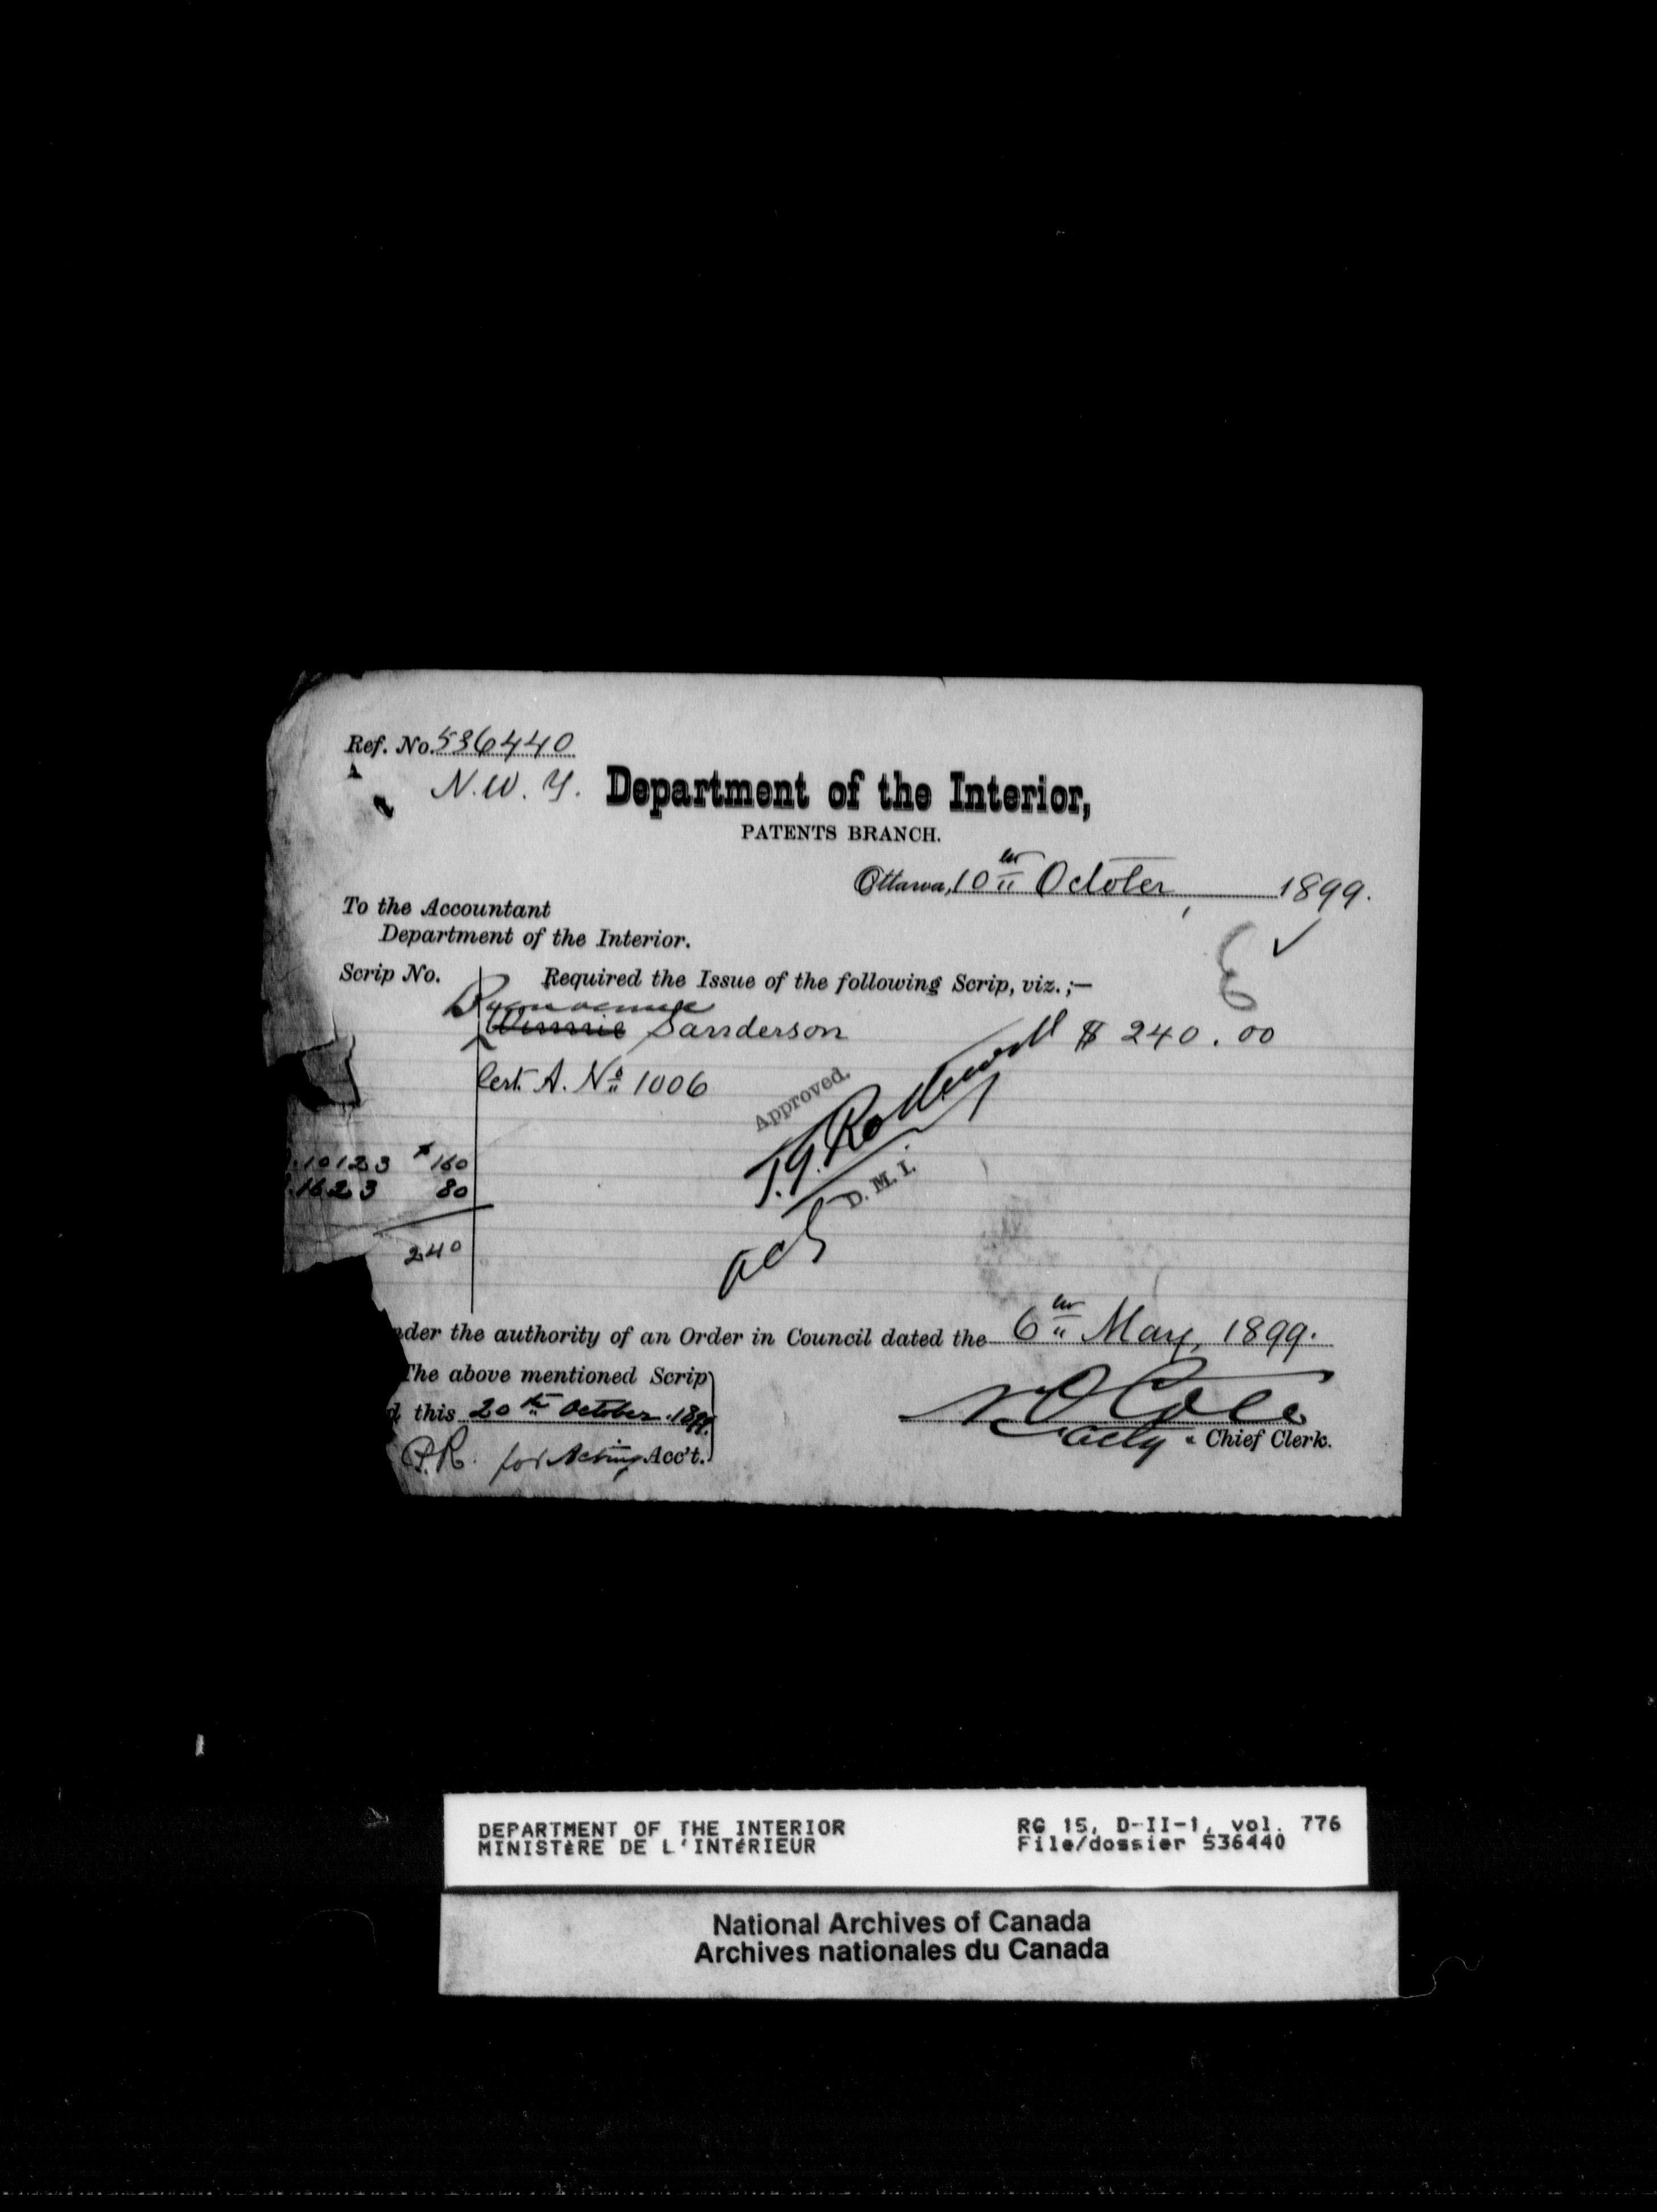 Ref. No. 536440
N.W.T.
Department of the Interior,
PATENTS BRANCH.
Ottawa, 10th October, 1899.
To the Accountant
Department of the Interior.
Scrip No.
Required the Issue of the following Scrip, viz.;—
Sanderson $ 240.00
Cert. A. No 1006
Approved.
D. M. I.
10123 $160
1623 80
240
nder the authority of an Order in Council dated the 6th May, 1899.
The above mentioned Scrip
d this 20th October 1899.
P.R. for Acting Acc't.
N O Coté
Actg. Chief Clerk.
DEPARTMENT OF THE INTERIOR
MINISTÈRE DE L'INTÉRIEUR
RG 15, D-II-1, vol. 776
File/dossier 536440
National Archives of Canada
Archives nationales du Canada